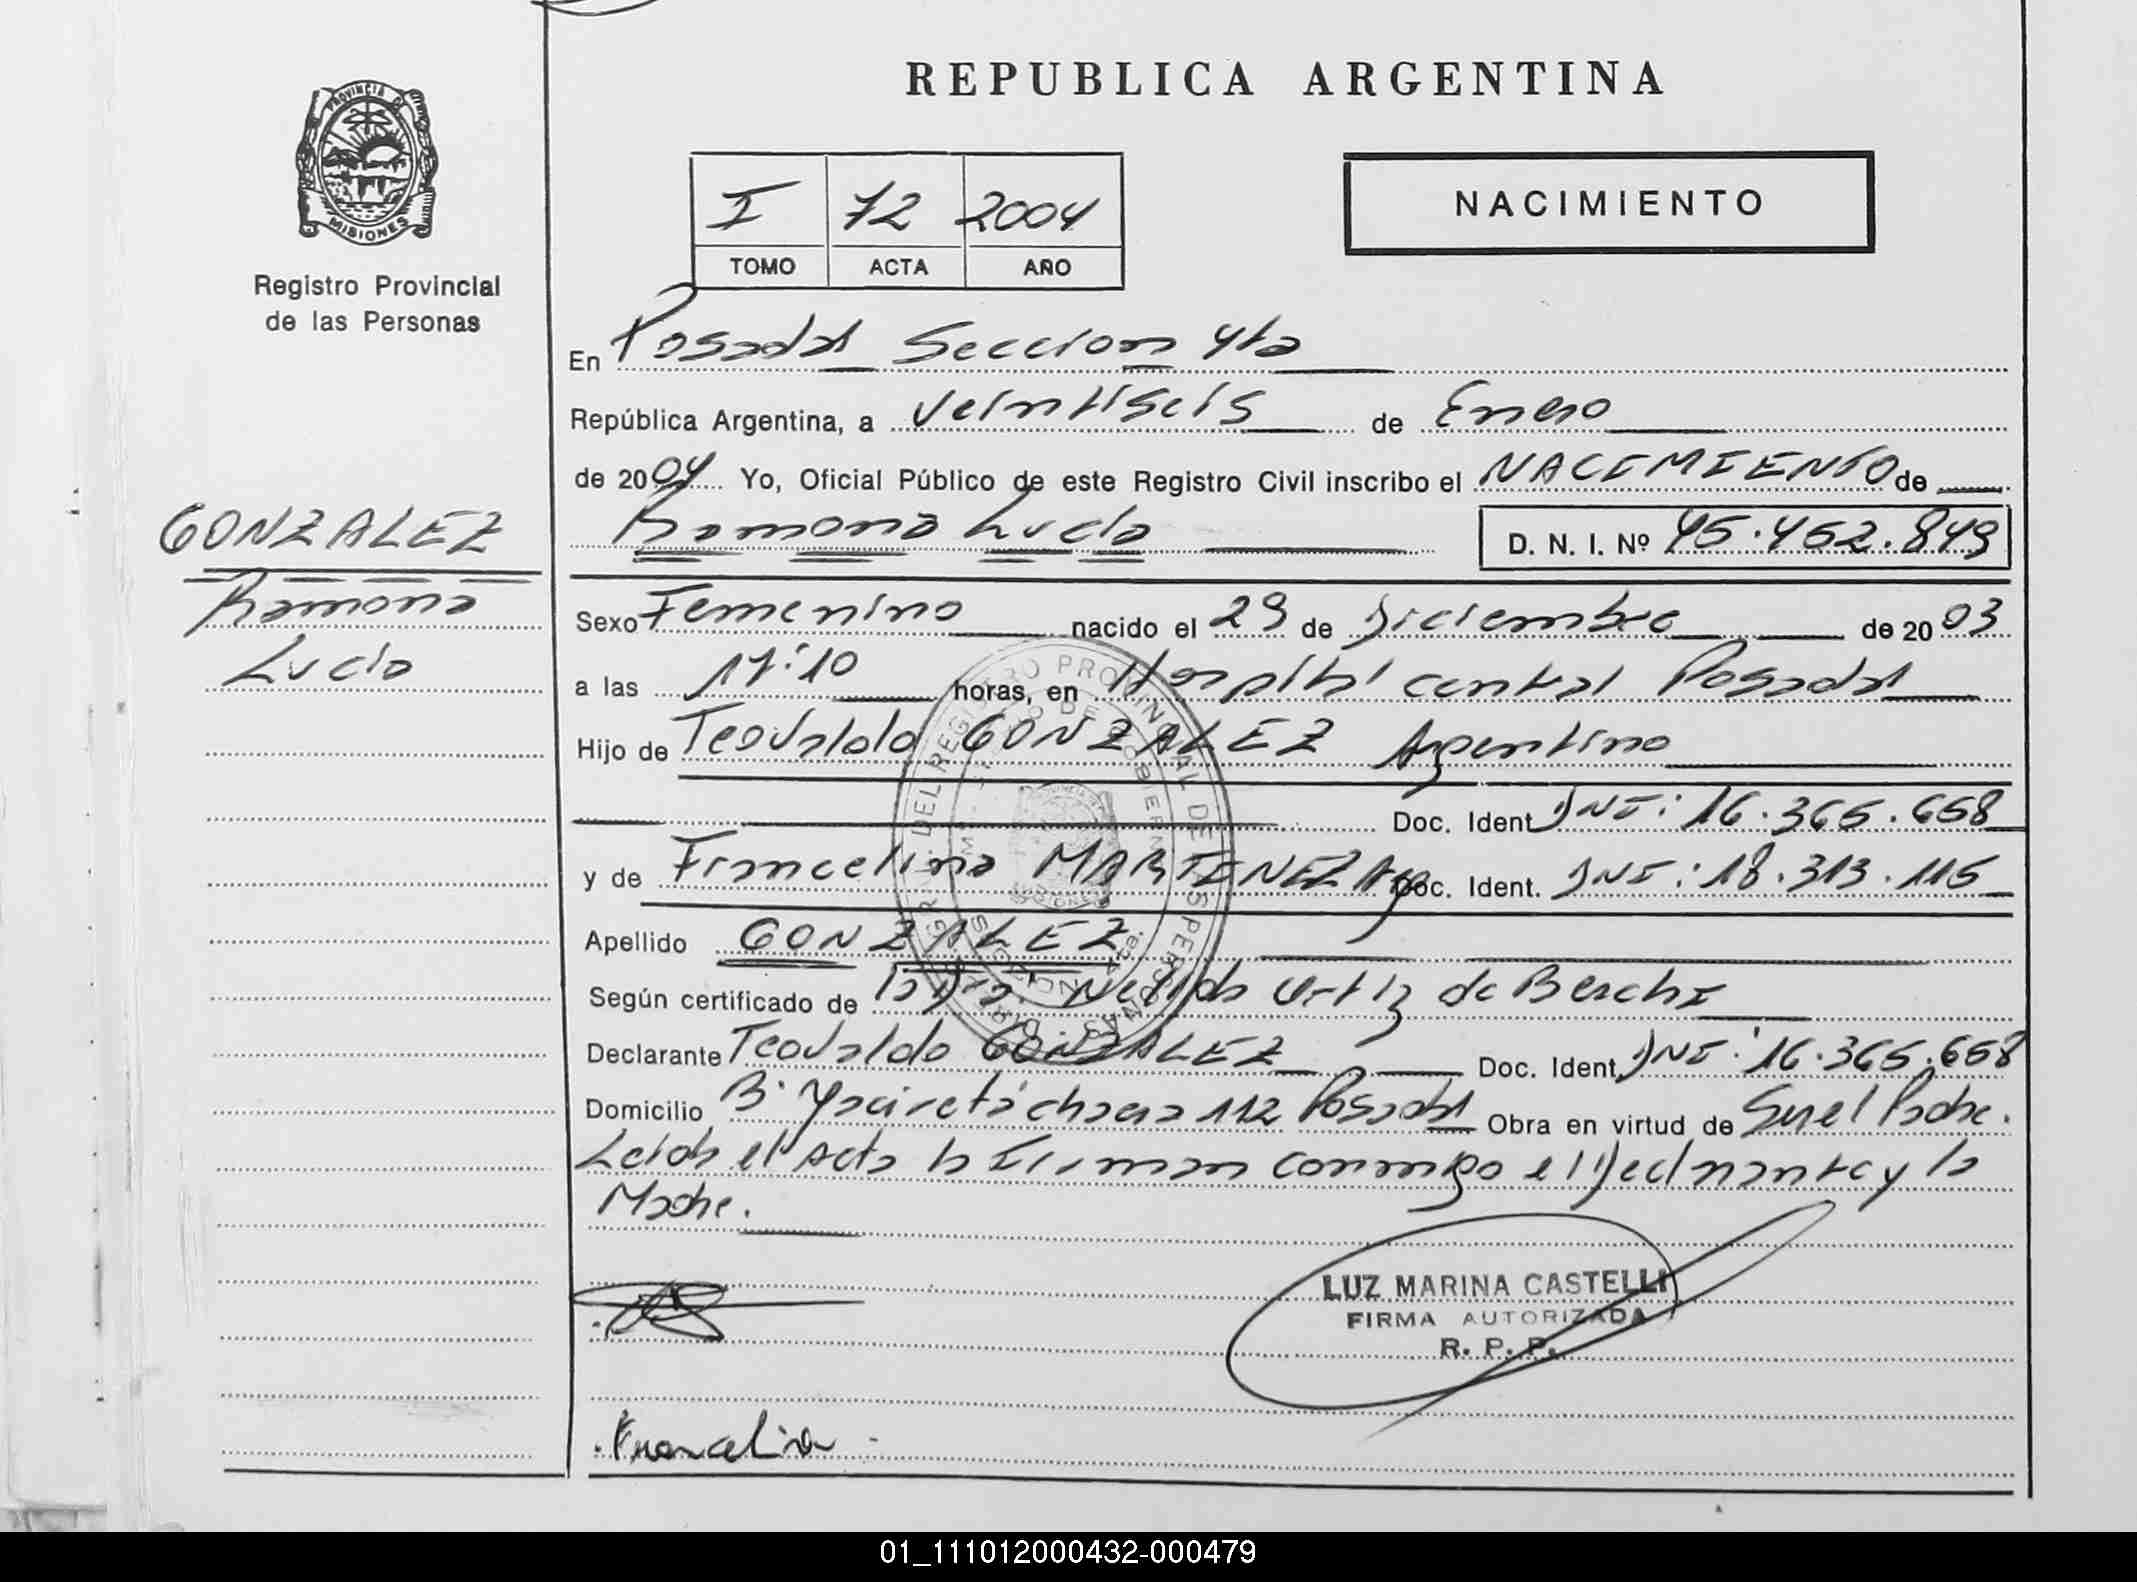 REPUBLICA ARGENTINA
PROVINCIA DE
MISIONES
Registro Provincial
de las Personas
I 72 2004
TOMO ACTA AÑO
NACIMIENTO
En Posadas Seccion 4ta
República Argentina, a veintiseis de Enero
de 2004 Yo, Oficial Público de este Registro Civil inscribo el NACIMIENTO de
Ramona Lucia D. N. I. Nº 45.452.849
GONZALEZ
Ramona
Lucia
Sexo Femenino nacido el 29 de Diciembre de 2003
a las 17:10 horas, en Hospital central Posadas
Hijo de Teovaldo GONZALEZ Argentino
Doc. Ident DNI: 16.365.658
y de Francelina MARTINEZ Arg Doc. Ident. DNI: 18.313.115
Apellido GONZALEZ
Según certificado de la Dra. Nelida Ortiz de Berchi
Declarante Teovaldo GONZALEZ Doc. Ident. DNI: 16.365.658
Domicilio Bº Yaciretá chacra 112 Posadas Obra en virtud de Ser el Padre.
Leida el Acta la Firman conmigo el Declarante y la
Madre.
LUZ MARINA CASTELLI
FIRMA AUTORIZADA
R. P. P.
Francelina
01_111012000432-000479